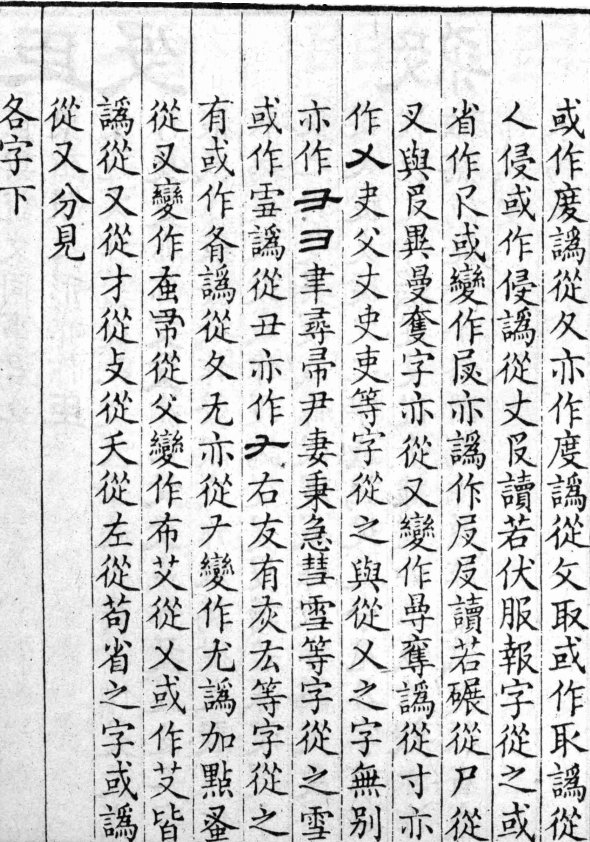 或作度譌從夂亦作庹譌從攵取或作取譌從
人侵或作侵譌從丈𠬝讀若伏服報字從之或
省作𠬝或變作𠬝亦譌作𠬝𠬝讀若碾從尸從
又與𠬝異曼奪字亦從又變作㝵奪譌從寸亦
作㐅史父丈史吏等字從之與從乂之字無別
亦作彐⺕聿尋帚尹妻秉急彗雪等字從之雪
或作雪譌從丑亦作𠂇右友有灰厷等字從之
有或作㕛譌從夂尤亦從𠂇變作尤譌加點蚤
從叉變作蚤帚從父變作布艾從乂或作艾皆
譌從又從才從攴從夭從左從苟省之字或譌
從又分見
各字下